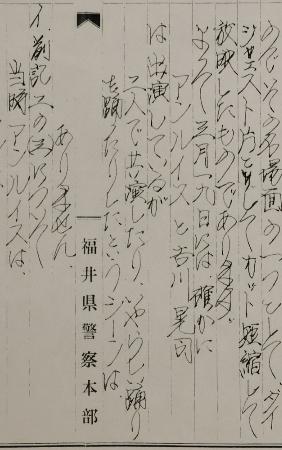 のでその名場面の一つとしてダイ
ジェスト片としてカット短縮して
放映したものであります。
よって三月一九日には確かに
アンルイスと古川晃司
は出演しているが
二人で共演したり、いやらしい踊り
を踊ったりしたというシーンは
ありません。
イ、前記二の点について
当時アンルイスは、
福井県警察本部